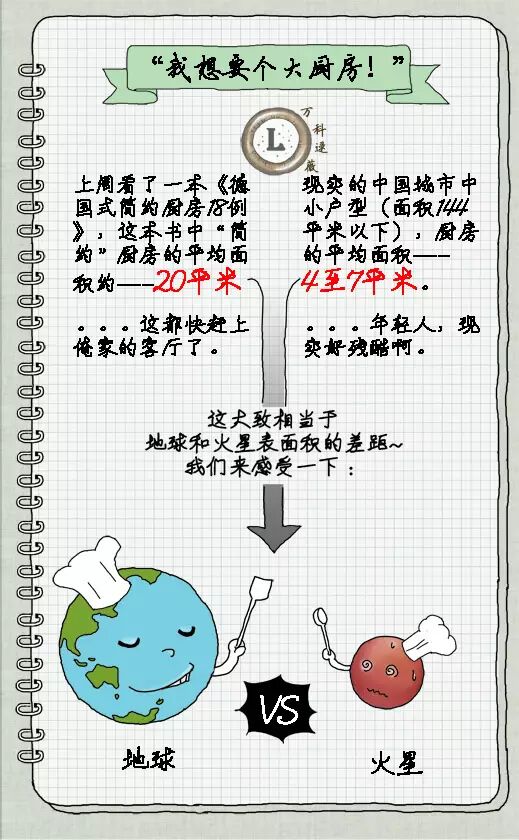 “我想要个大厨房！”
L
万科速藏
上周看了一本《德
国式简约厨房18例
》，这本书中“简
约”厨房的平均面
积约——20平米
。。。这都快赶上
俺家的客厅了。
现实的中国城市中
小户型（面积144
平米以下），厨房
的平均面积——
4至7平米。
。。。年轻人，现
实好残酷啊。
这大致相当于
地球和火星表面积的差距~
我们来感受一下：
VS
地球
火星